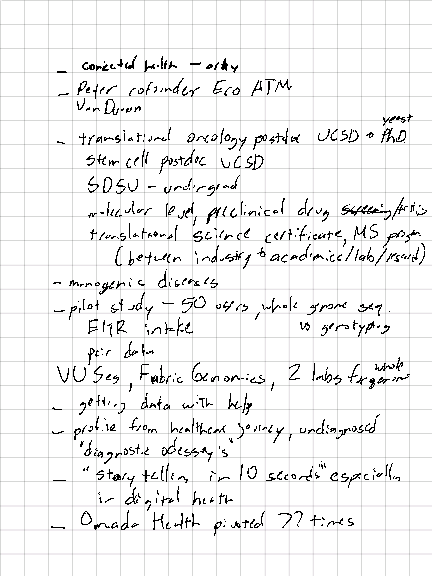 - connected health -
- Peter cofounder Eco ATM
Van Duren
- translational oncology postdoc UCSD + yeast PhD
stem cell postdoc UCSD
SDSU - undergrad
molecular level, preclinical drug
translational science certificate, MS program
(between industry to academics/lab/research)
- monogenic diseases
- pilot study - 50 users, whole genome seq.
EMR intake vs genotyping
pair data
Fabric Genomics, 2 labs for whole genome
- getting data with help
- profile from healthcare journey, undiagnosed
"diagnostic odessey's"
- "story telling in 10 seconds" especially
in digital health
- Omada Health pivoted ?? times